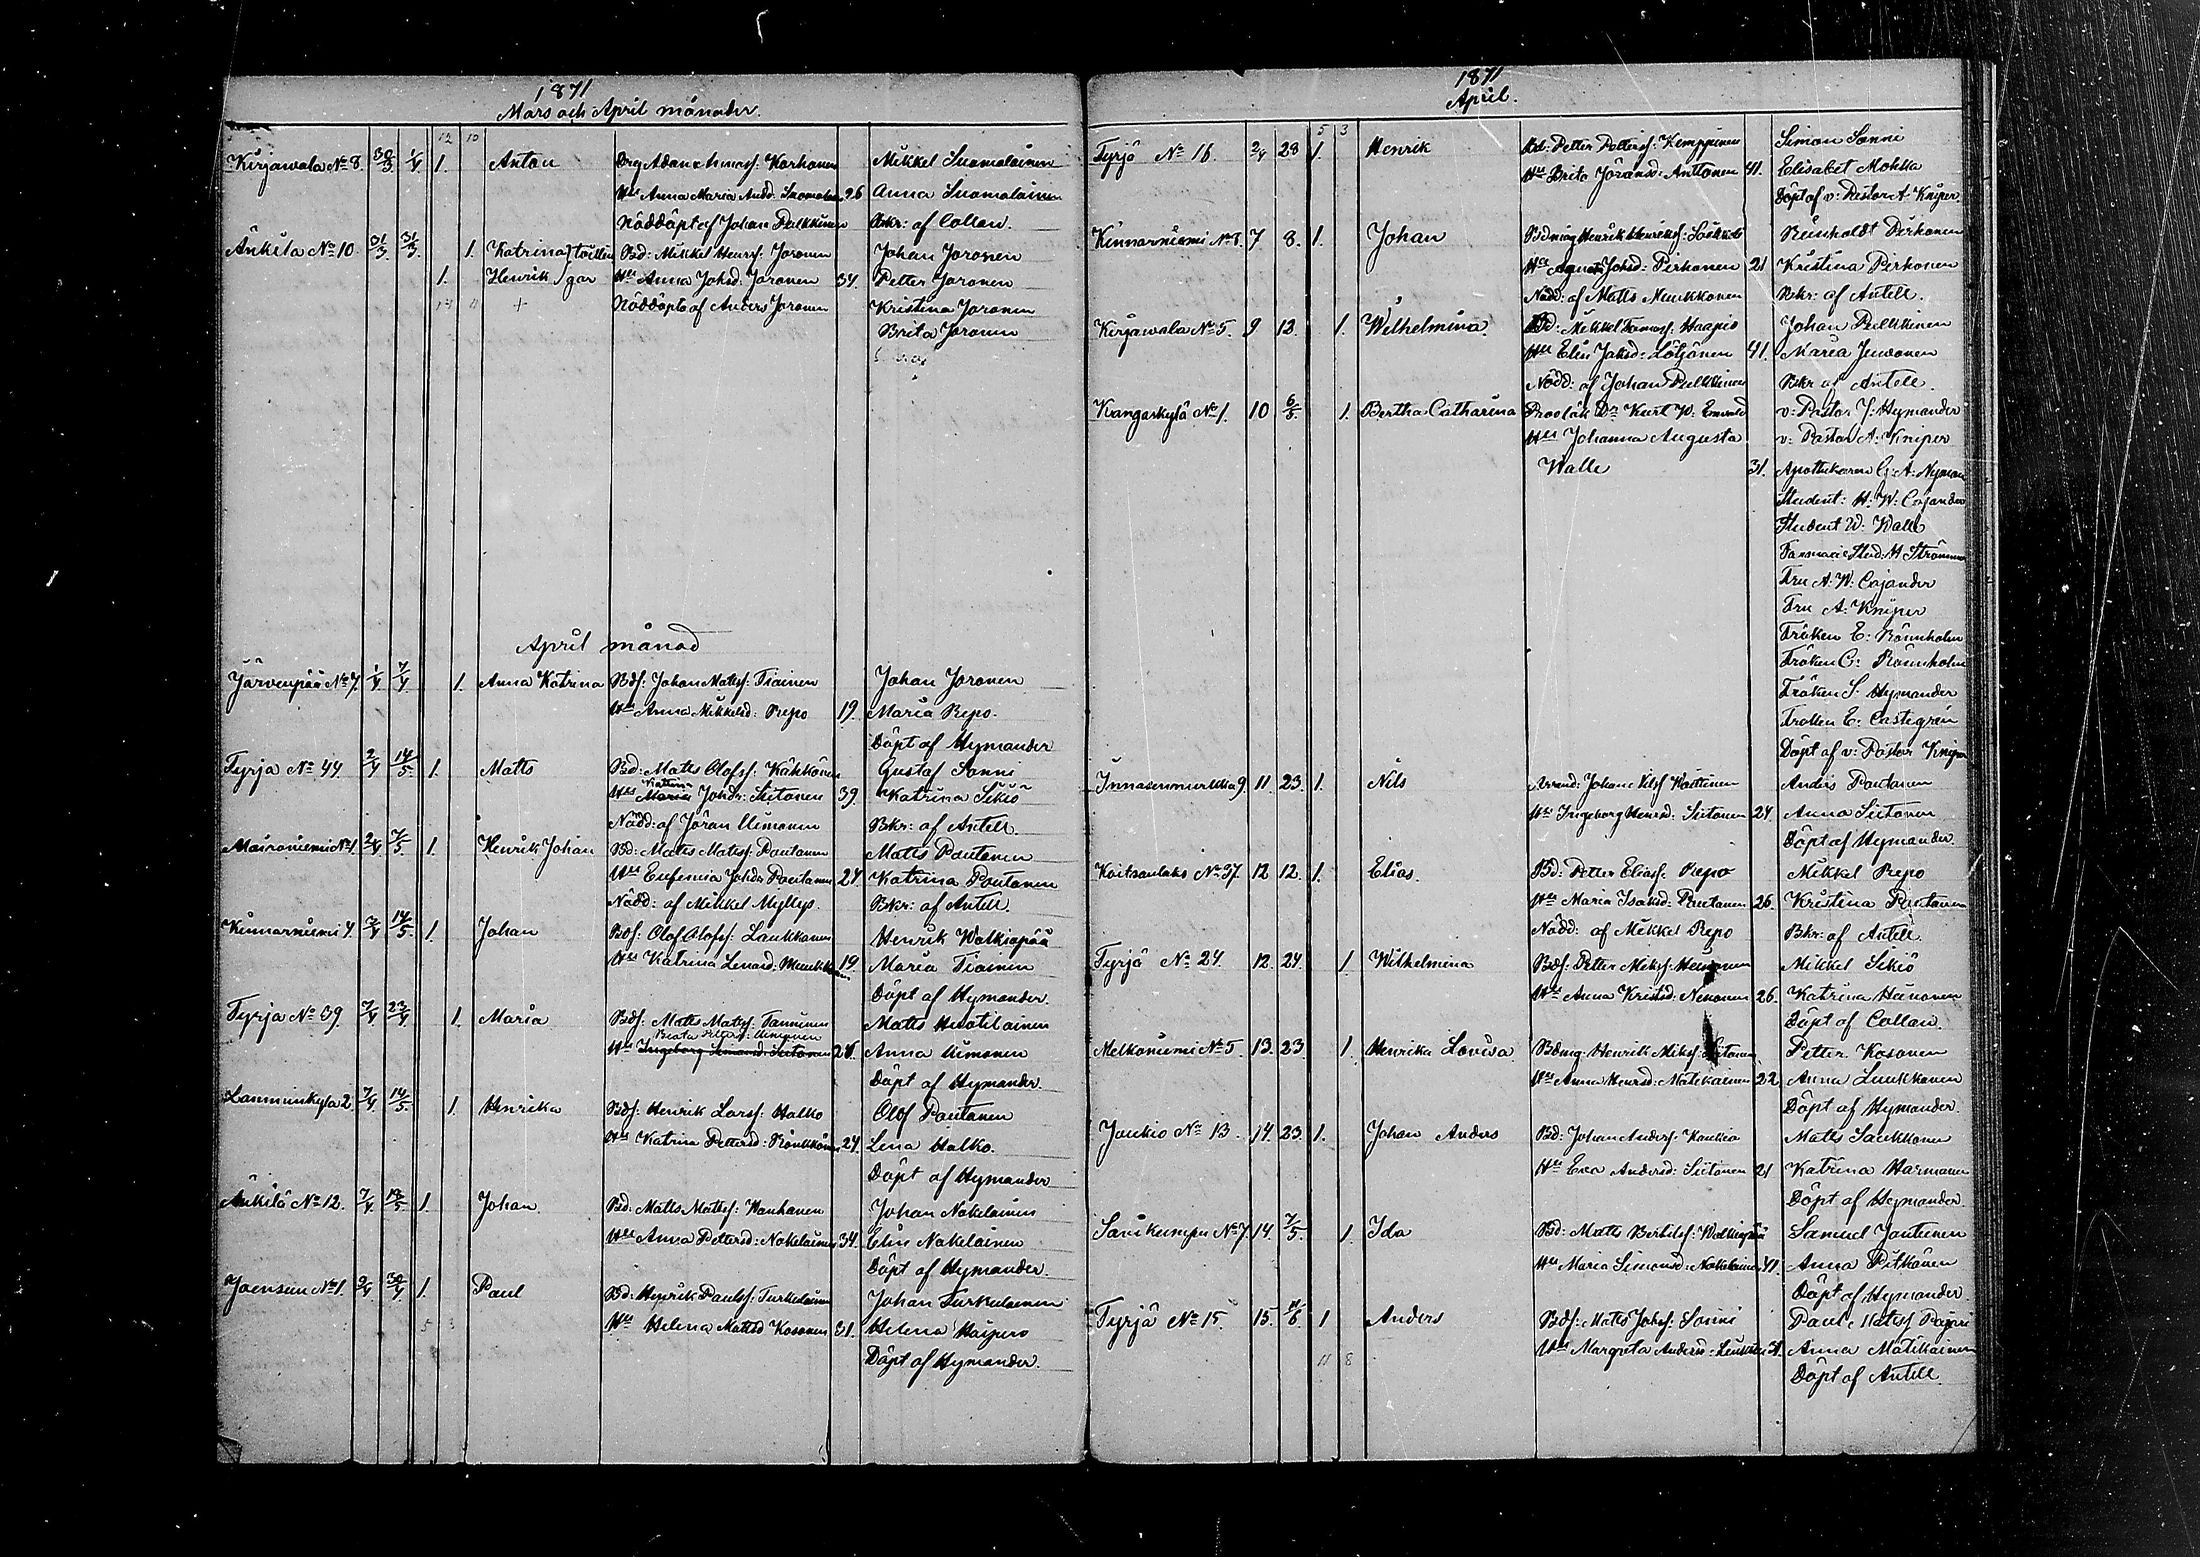 1871
Mars och April månader.
12 10
Kirjawala No 8. 30/3 1/4 1. Anton Drg Adam Tomasf: Karhonen Mikkel Suomalainen
Hu Anna Maria Andd: Suomalainen 26 Anna Suomalainen
Nöddöpt af Johan Pulkkinen Bkr: af Collan.
Änkilä No 10. 31/3 31/3 1. Katrina tvillin Bd: Mikkel Henrf: Joronen Johan Joronen
1. Henrik gar Hu Anna Johsd: Joronen 34. Petter Joronen
+ Nöddöpta af Anders Joronen Kristina Joronen
Brita Joronen
April månad
Järvenpää No 7. 1/4 7/4 1. Anna Katrina Bdf: Johan Matsf: Tiainen Johan Joronen
Hu Anna Mikkelsd: Repo 19. Maria Repo.
Döpt af Hymander
Tyrjä No 44. 2/4 14/5. 1. Matts Bd: Matts Olofsf: Kähkönen Gustaf Sonni
Katrina
Hu Maria Johdr: Siitonen 39. Katrina Sikiö
Nödd: af Jöran Uimonen Bkr: af Antell.
Moironiemi No 1 2/4 7/5. 1. Henrik Johan Bd: Matts Matsf: Poutanen Matts Poutanen
Hu Eufemia Johdr Poutanen 24. Katrina Poutanen
Nödd: af Mikkel Myllys. Bkr: af Antell.
Kinnarniemi 4. 3/4 14/5. 1. Johan Bdf: Olof Olofsf: Laukkanen Henrik Walkiapää
Hu Katrina Lenard: Muukkonen 19. Maria Tiainen
Döpt af Hymander.
Tyrjä No 39. 7/4 23/4 1. Maria Bdf: Matts Matsf: Tanninen Matts Huotilainen
Beata Pettersd: Uimonen
Hu Ingeborg Simonsd: Siitonen 26. Anna Uimonen
Döpt af Hymander.
Lamminkylä 2. 7/4 14/5. 1. Henrika Bdf: Henrik Larsf: Halko Olof Poutanen
Hu Katrina Pettersd: Rönkkönen 24. Lena Halko.
Döpt af Hymander
Änkilä No 12. 7/4 18/5 1 Johan Bd: Matts Matsf: Wanhanen Johan Nokelainen
Hu Anna Pettersd: Nokelainen 34. Elin Nokelainen
Döpt af Hymander.
Joensuu No 1. 9/4 30/4 1. Paul Bd: Henrik Paulsf: Turkulainen Johan Turkulainen
5 3 Hu Helena Mattsd Kosonen 31. Helena Haipero
Döpt af Hymander.
1871
April.
5 3
Tyrjä No 16. 2/4 28 1. Henrik Bd: Petter Pettersf: Kemppinen Simon Sonni
Hu Brita Jöransd: Anttonen 41. Elisabet Mohkka
Döpt af v: Pastor A. Kniper.
Kinnarniemi No 8. 7 8. 1. Johan Bdmåg Henrik Henriksf: Laukkanen Reinholdt Pirhonen
Hu Agnes Johsd: Pirhonen 21 Kristina Pirhonen
Nödd: af Matts Muukkonen Bkr: af Antell.
Kirjawala No 5. 9 12. 1. Wilhelmina. Bd: Mikkel Tomasf: Haapio Johan Pulkkinen
Hu Elin Jaksd: Lötjönen 41. Maria Juvonen
Nödd: af Johan Pulkkinen Bkr af Antell.
Kangaskylä No 1. 10 6/8. 1. Bertha Catharina Prov.läk Dr Kurt W. v: Pastor J: Hymander
Hu Johanna Augusta v: Pastor A: Kniper
Walle 31. Apothekaren G. A. Nyman
Student: H. W: Cajander
Student W: Walle
Farmacie Stud: H
Fru A. W: Cajander
Fru A: Kniper
Fröken E: Rönnholm
Fröken C: Rönnholm
Fröken S: Hymander
Fröken E: Castegrén
Döpt af v: Pastor Kniper
Innasenmurkka 9. 11. 23. 1. Nils Arrend: Johan Nilsf Poutanen Anders Poutanen
Hu Ingeborg Henrsd: Siitonen 24. Anna Siitonen
Döpt af Hymander.
Koitsanlaks No 37. 12 12. 1. Elias. Bd: Petter Eliasf: Repo Mikkel Repo
Hu Maria Isaksd: Poutanen 26. Kristina Poutanen
Nödd: af Mikkel Repo Bkr: af Antell.
Tyrjä No 24. 12. 24. 1 Wilhelmina Bdf: Petter Miksf: Heinonen Mikkel Sikiö
Hu Anna Kristsd: Nenonen 26. Katrina Heinonen
Döpt af Collan.
Melkoniemi No 5. 13. 23 1 Henrika Lovisa Bdmg. Henrik Miksf: Siitonen Petter Kosonen
Hu Anna Henrsd: Matikainen 22. Anna Luukkanen
Döpt af Hymander.
Joukio No 13. 14. 23. 1. Johan Anders Bd: Johan Andersf: Koukia Matts Laukkanen
Hu Eva Andersd: Siitonen 21 Katrina Harmanen
Döpt af Hymander.
Sarikumpu No 7. 14. 7/5. 1. Ida Bd: Matts Bertilsf: Walkiapää Samuel Jantunen
Hu Maria Simonsd: Nokelainen 41. Anna Pitkänen
Döpt af Hymander
Tyrjä No 15. 15. 11/6. 1 Anders Bdf: Matts Johsf: Sonni Paul Matsf Pajari
11 8 Hu Margreta Andersd: 31. Anna Matikainen
Döpt af Antell.